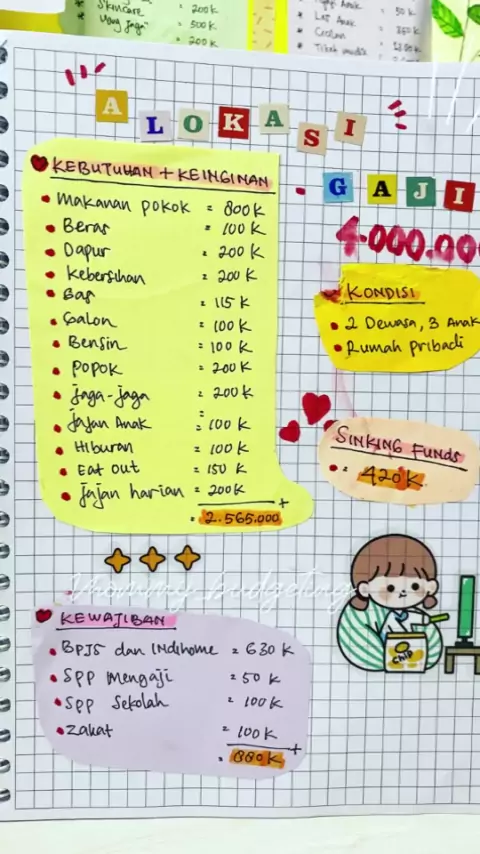 Skincare = 200K
Uang jaga² = 500K
= 200K
Anak = 50 K
* LES Anak = 350 K
* Cicilan
*
ALOKASI
GAJI
4.000.00
KEBUTUHAN + KEINGINAN
• Makanan pokok = 800K
• Beras = 100K
• Dapur = 200 K
• Kebersihan = 200 K
• Gas = 115 K
• Galon = 100K
• Bensin = 100 K
• POPOK = 200K
• Jaga-jaga = 200K
=
• Jajan Anak = 100 K
• Hiburan = 100 K
• Eat out = 150 K
• Jajan harian = 200K
+
= 2.565.000
KONDISI
• 2 Dewasa, 3 Anak
• Rumah pribadi
SINKING FUNDS
• = 420K
Mommy_budgeting
chip
KEWAJIBAN
• BPJS dan Indihome = 630 K
• SPP Mengaji = 50 K
• SPP Sekolah = 100K
• Zakat = 100 K
+
= 880K